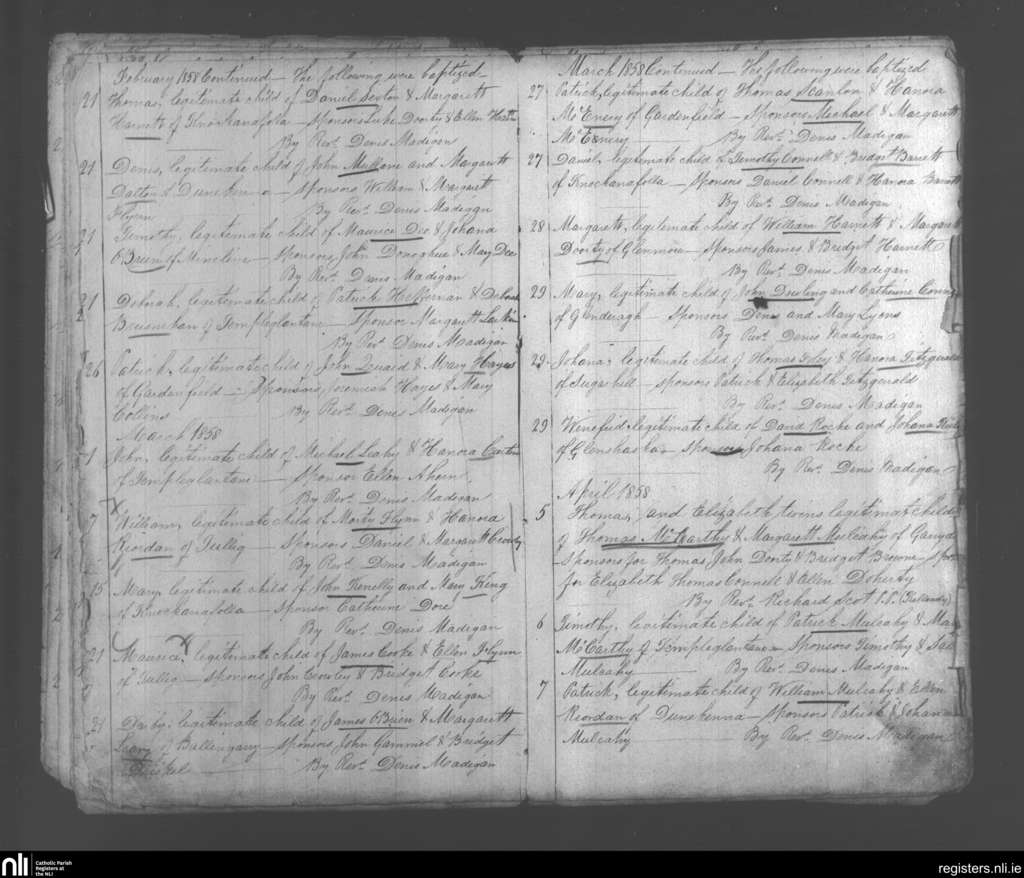 February 1858 Continued — The following were baptized
21 Thomas, legitimate child of Daniel Sexton & Margarett
Harnett of Knockanafola — Sponsors Luke Doorty & Ellen
By Revd. Denis Madigan
21 Denis, legitimate child of John Mullane and Margarett
Dalton of — Sponsors William & Margaret
Flynn By Revd. Denis Madigan
21 Timothy, legitimate child of Maurice Dee & Johana
O'Brien of Mineline — Sponsors John Donoghue & Mary Dee
By Revd. Denis Madigan
21 Deborah, legitimate child of Patrick Heffernan & Deborah
of Templeglantane — Sponsor Margarett
By Revd. Denis Madigan
26 Patrick, legitimate child of John Quaid & Mary Hayes
of Gardenfield — Sponsors Jeremiah Hayes & Mary
Collins By Revd. Denis Madigan
March 1858
1 John, legitimate child of Michael Leahy & Hanora
of Templeglantane — Sponsor Ellen Ahern
By Revd. Denis Madigan
7 William, legitimate child of Morty Flynn & Hanora
Riordan of Tullig — Sponsors Daniel & Margarett
By Revd. Denis Madigan
15 Mary, legitimate child of John Kenelly and Mary King
of Knockanafolla — Sponsor Catherine Dore
By Revd. Denis Madigan
21 Maurice, legitimate child of James Corke & Ellen Flynn
of Tullig — Sponsors John & Bridget Corke
By Revd. Denis Madigan
21 legitimate child of James O'Brien & Margarett
Leary of Ballingary — Sponsors John Gammel & Bridget
By Revd. Denis Madigan
March 1858 Continued — The following were baptized
27 Patrick, legitimate child of Thomas Scanlon & Hanora
McEnery of Gardenfield — Sponsors Michael & Margarett
McEnery By Revd. Denis Madigan
27 Daniel, legitimate child of Timothy Connell & Bridget Barrett
of Knockanafolla — Sponsors Daniel Connell & Hanora Barrett
By Revd. Denis Madigan
28 Margarett, legitimate child of William Harnett & Margaret
Doorty of Glenmore — Sponsors James & Bridget Harnett
By Revd. Denis Madigan
29 Mary, legitimate child of John Dowling and Catherine
of Glenderagh — Sponsors Denis and Mary Lyons
By Revd. Denis Madigan
29 Johana, legitimate child of Thomas Foley & Hanora Fitzgerald
of Sugarhill — Sponsors Patrick & Elizabeth Fitzgerald
By Revd. Denis Madigan
29 Winefrid, legitimate child of David Roche and Johana
of Glenshaska — Sponsor Johana Roche
By Revd. Denis Madigan
April 1858
5 Thomas, and Elizabeth twins legitimate child
of Thomas McCarthy & Margarett Mulcahy of
Sponsors for Thomas John Doorty & Bridget Browne —
for Elizabeth Thomas Connell & Ellen Doherty
By Revd. Richard Scot P.P.
6 Timothy, legitimate child of Patrick Mulcahy & Mary
McCarthy of Templeglantane — Sponsors Timothy &
Mulcahy By Revd. Denis Madigan
7 Patrick, legitimate child of William Mulcahy & Ellen
Reordan of Dunekenna — Sponsors Patrick & Johana
Mulcahy — By Revd. Denis Madigan
nli
Catholic Parish
Registers at
the NLI
registers.nli.ie